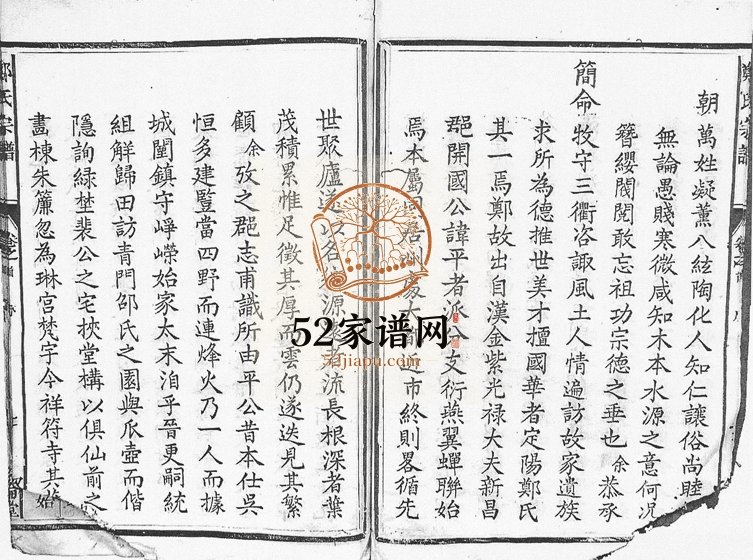 鄭氏宗譜
朝萬姓凝薰八絃陶化人知仁讓俗尚睦
無論愚賤寒微咸知木本水源之意何况
簪纓閥閱敢忘祖功宗德之垂也余恭承
簡命牧守三衢咨諏風土人情遍訪故家遺族
求所為德推世美才擅國華者定陽鄭氏
其一焉鄭故出自漢金紫光禄大夫新昌
郡開國公諱平者派分支衍燕翼蟬聯始
焉本屬居處大之市終則畧循先
世聚廬以各源流長根深者葉
茂積累惟足徵其厚而雲仍遂迭見其繁
顧余攷之郡志甫識所由平公昔本仕吳
恒多建覧當四野而連烽火乃一人而據
城闉鎮守崢嶸始家太末洎乎晉更嗣統
組解歸田訪青門邵氏之園與瓜壺而偕
隱詢綠埜裴公之宅挾堂構以俱仙前之
畵棟朱簾忽為琳宮梵宇今祥符寺其始
鄭氏宗譜
52家谱网
52jiapu.com